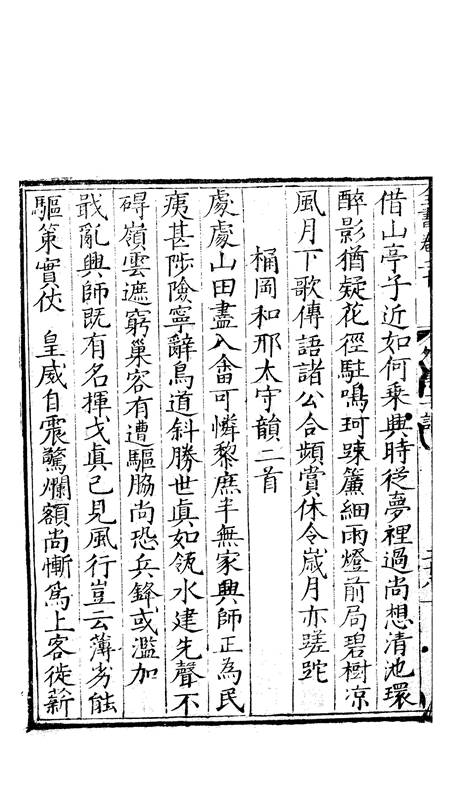 全書卷二十
借山亭子近如何乘興時從夢裡過尚想清池環
醉影猶疑花徑駐鳴珂踈簾細雨燈前局碧樹凉
風月下歌傳語諸公合頻賞休令歲月亦蹉跎
桶岡和邢太守韻二首
處處山田盡入畬可憐黎庶半無家興師正為民
痍甚陟險寧辭鳥道斜勝世真如瓴水建先聲不
碍嶺雲遮窮巢容有遭驅脇尚恐兵鋒或濫加
戢亂興師既有名揮戈真已見風行豈云薄劣能
驅策實仗 皇威自震驚爛額尚慚為上客徙薪